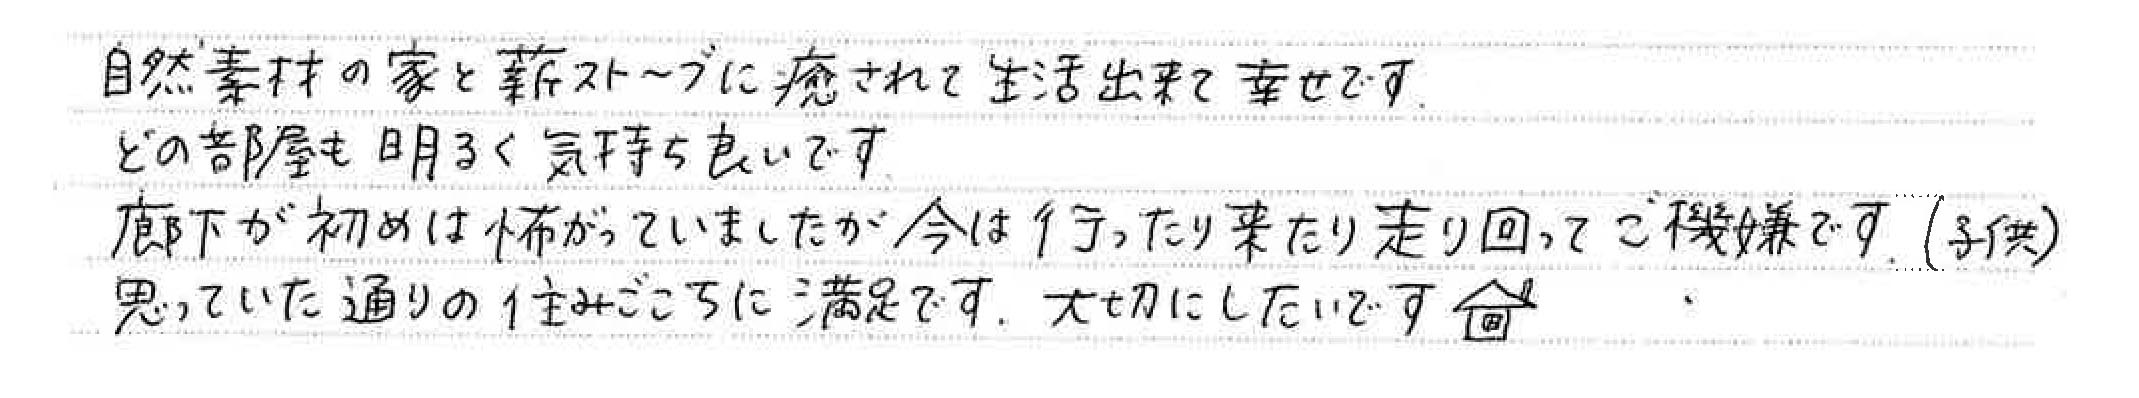 自然素材の家と薪スト〜ブに癒されて生活出来て幸せです.
どの部屋も明るく気持ち良いです.
廊下が初めは怖がっていましたが今は行ったり来たり走り回ってご機嫌です.(子供)
思っていた通りの住みごこちに満足です.大切にしたいです